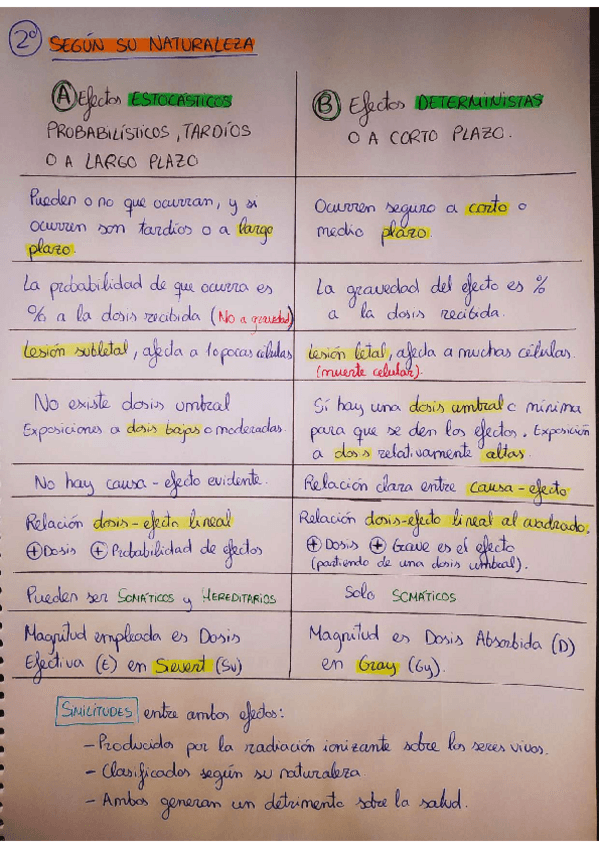 2º SEGÚN SU NATURALEZA
A Efectos ESTOCÁSTICOS
PROBABILÍSTICOS, TARDÍOS
O A LARGO PLAZO
B Efectos DETERMINISTAS
O A CORTO PLAZO.
Pueden o no que ocurran, y si
ocurren son tardíos o a largo
plazo.
Ocurren seguro a corto o
medio plazo.
La probabilidad de que ocurra es
% a la dosis recibida (No a gravedad)
La gravedad del efecto es %
a la dosis recibida.
Lesión subletal, afecta a 1 o pocas células
Lesión letal, afecta a muchas células.
(muerte celular).
No existe dosis umbral
Exposiciones a dosis bajas o moderadas.
Sí hay una dosis umbral o mínima
para que se den los efectos. Exposición
a dosis relativamente altas.
No hay causa-efecto evidente.
Relación clara entre causa-efecto
Relación dosis-efecto lineal
⊕ Dosis ⊕ Probabilidad de efectos
Relación dosis-efecto lineal al cuadrado.
⊕ Dosis ⊕ Grave es el efecto
(partiendo de una dosis umbral).
Pueden ser SOMÁTICOS y HEREDITARIOS
Solo SOMÁTICOS
Magnitud empleada es Dosis
Efectiva (E) en Sievert (Sv)
Magnitud es Dosis Absorbida (D)
en Gray (Gy).
SIMILITUDES entre ambos efectos:
- Producidos por la radiación ionizante sobre los seres vivos.
- Clasificados según su naturaleza
- Ambos generan un detrimento sobre la salud.